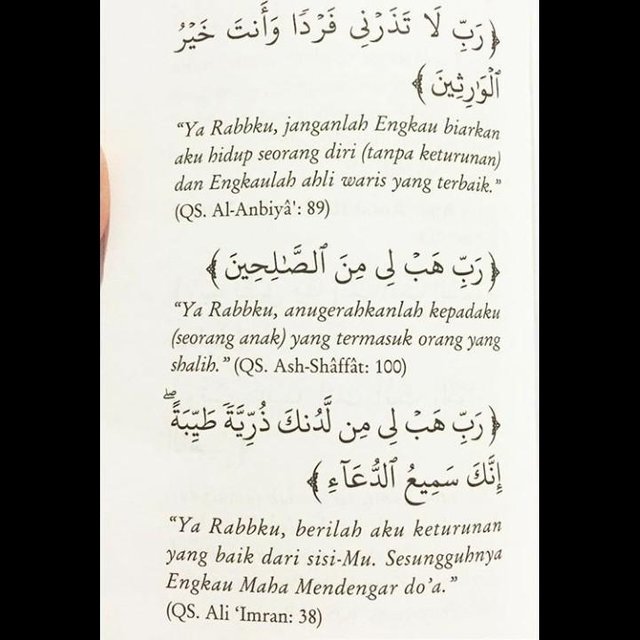 ﴿ رَبِّ لَا تَذَرْنِى فَرْدًا وَأَنتَ خَيْرُ
ٱلْوَٰرِثِينَ ﴾
“Ya Rabbku, janganlah Engkau biarkan
aku hidup seorang diri (tanpa keturunan)
dan Engkaulah ahli waris yang terbaik.”
(QS. Al-Anbiyâ': 89)
﴿ رَبِّ هَبْ لِى مِنَ ٱلصَّٰلِحِينَ ﴾
“Ya Rabbku, anugerahkanlah kepadaku
(seorang anak) yang termasuk orang yang
shalih.” (QS. Ash-Shâffât: 100)
﴿ رَبِّ هَبْ لِى مِن لَّدُنكَ ذُرِّيَّةً طَيِّبَةً ۖ
إِنَّكَ سَمِيعُ ٱلدُّعَآءِ ﴾
“Ya Rabbku, berilah aku keturunan
yang baik dari sisi-Mu. Sesungguhnya
Engkau Maha Mendengar do’a.”
(QS. Ali ‘Imran: 38)